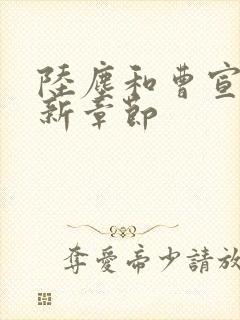 陸塵和曹宣
新章節
奪愛帝少請放